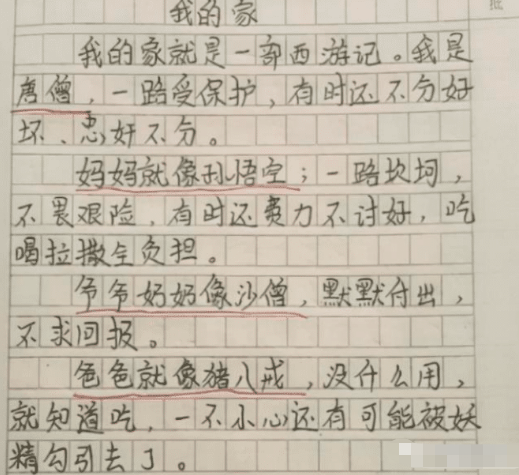 我的家
我的家就是一部西游记。我是
唐僧，一路受保护，有时还不分好
坏、忠奸不分。
妈妈就像孙悟空；一路坎坷，
不畏艰险，有时还费力不讨好，吃
喝拉撒全负担。
爷爷奶奶像沙僧，默默付出，
不求回报。
爸爸就像猪八戒，没什么用，
就知道吃，一不小心还有可能被妖
精勾引去了。